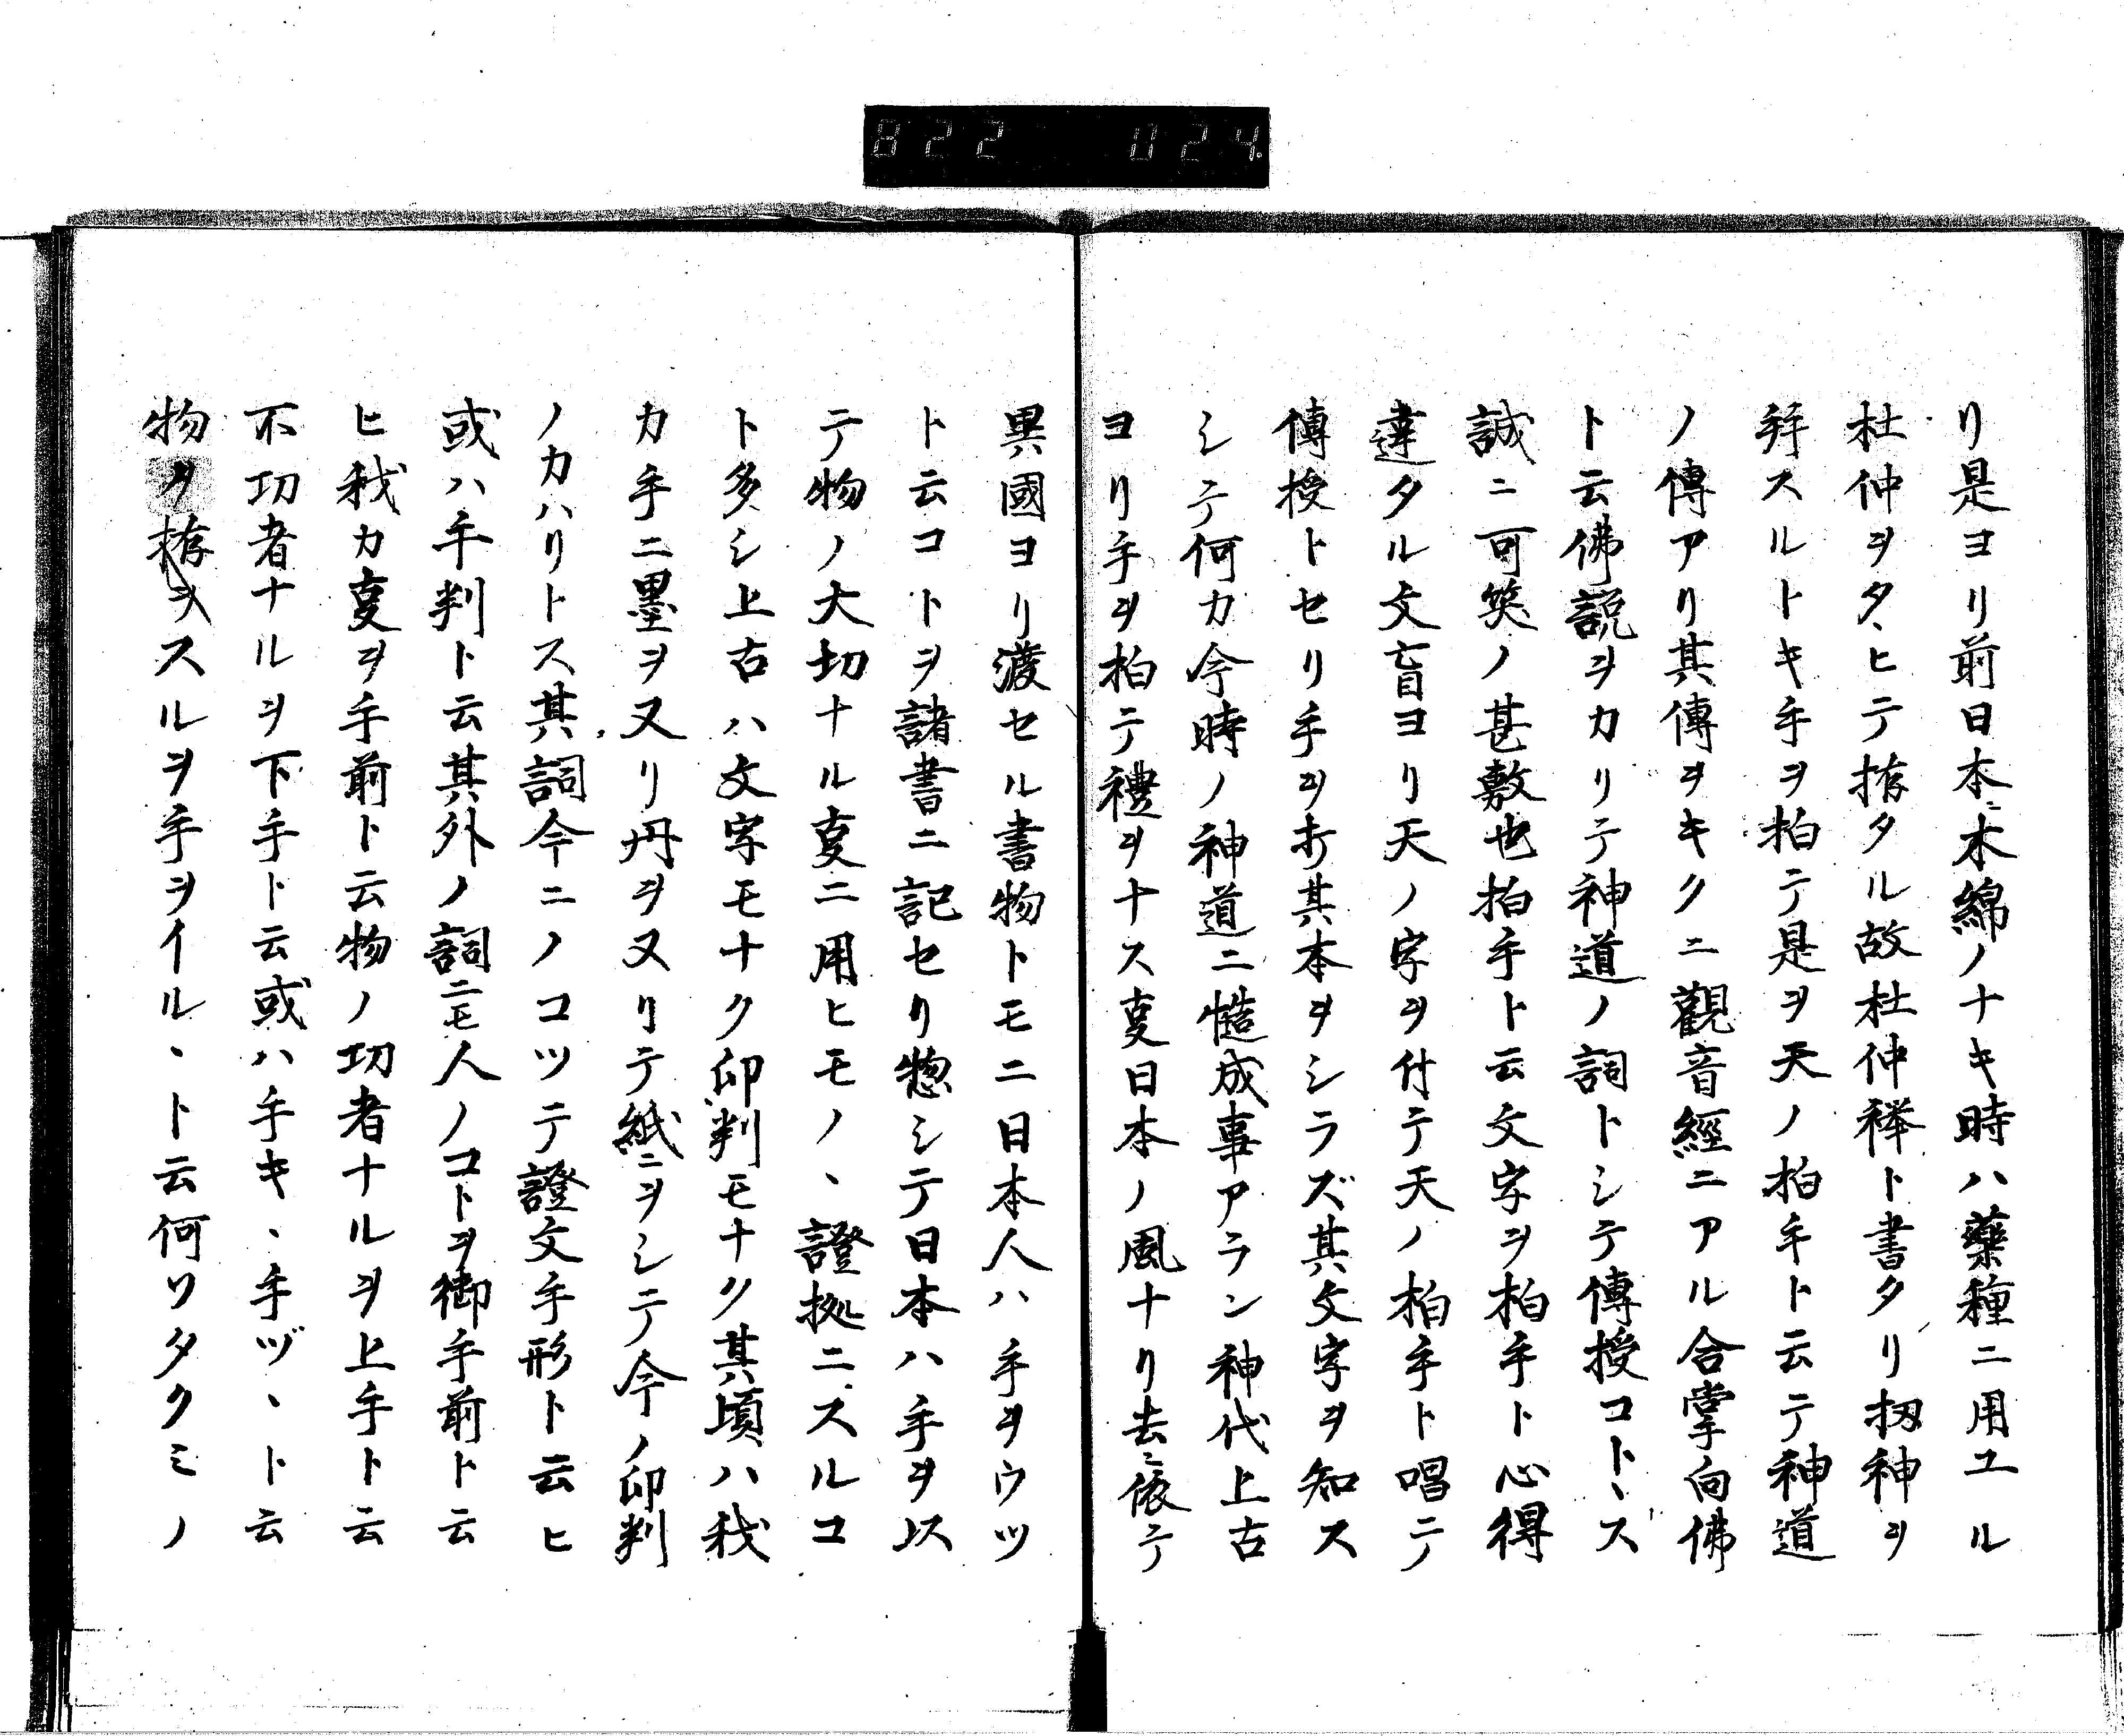 822 024
リ是ヨリ前日本ニ木綿ノナキ時ハ藥種ニ用ユル
杜仲ヲタヽヒテ拵タル故杜仲襷ト書タリ扨神ヲ
拜スルトキ手ヲ拍テ是ヲ天ノ拍手ト云テ神道
ノ傳アリ其傳ヲキクニ觀音經ニアル合掌向佛
ト云佛説ヲカリテ神道ノ詞トシテ傳授コトヽス
誠ニ可笑ノ甚敷也拍手ト云文字ヲ柏手ト心得
違タル文盲ヨリ天ノ字ヲ付テ天ノ柏手ト唱テ
傳授トセリ手ヲ打其本ヲシラズ其文字ヲ知ス
シテ何カ今時ノ神道ニ慥成事アラン神代上古
ヨリ手ヲ拍テ禮ヲナス叓日本ノ風ナリ去ニ依テ
異國ヨリ渡セル書物トモニ日本人ハ手ヲウツ
ト云コトヲ諸書ニ記セリ惣シテ日本ハ手ヲ以
テ物ノ大切ナル叓ニ用ヒモノヽ證拠ニスルコ
ト多シ上古ハ文字モナク印判モナク其頃ハ我
カ手ニ墨ヲヌリ丹ヲヌリテ紙ニヲシテ今ノ印判
ノカハリトス其詞今ニノコツテ證文手形ト云ヒ
或ハ手判ト云其外ノ詞ニモ人ノコトヲ御手前ト云
ヒ我カ叓ヲ手前ト云物ノ功者ナルヲ上手ト云
不功者ナルヲ下手ト云或ハ手キヽ手ヅヽト云
物ノ拵ヲスルヲ手ヲイルヽト云何ソタクミノ